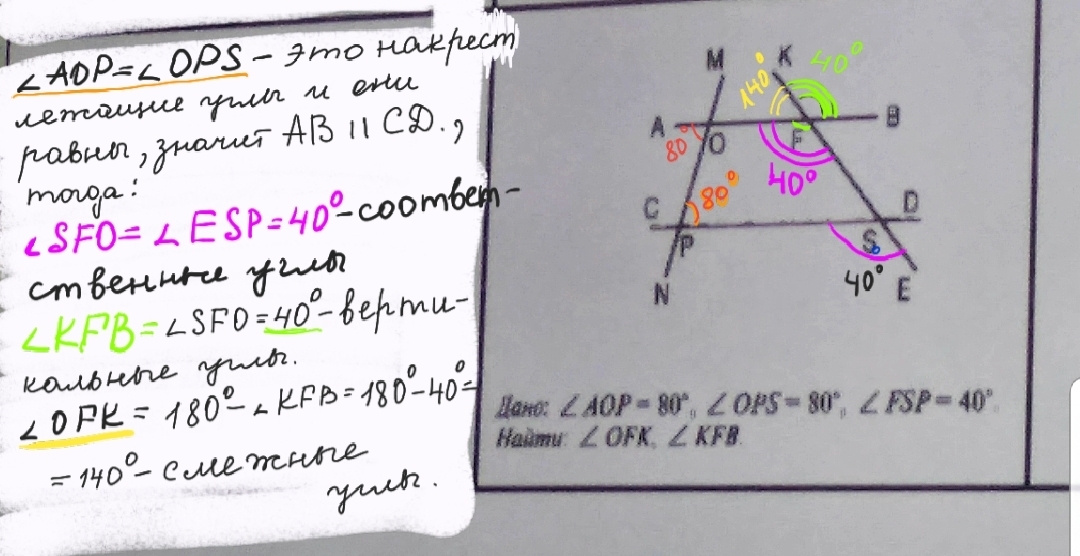 ∠AOP=∠OPS – это накрест
лежащие углы и они
равны, значит AB || CD.,
тогда:
∠SFO=∠ESP=40°-соответ-
ственные углы
∠KFB=∠SFO=40°-верти-
кальные углы.
∠OFK = 180°-∠KFB=180°-40°=
=140°-смежные
углы.
M
K
40°
140°
A
80°
O
F
B
40°
C
80°
P
D
S
40°
N
E
Дано: ∠AOP = 80°, ∠OPS = 80°, ∠FSP = 40°.
Найти: ∠OFK, ∠KFB.